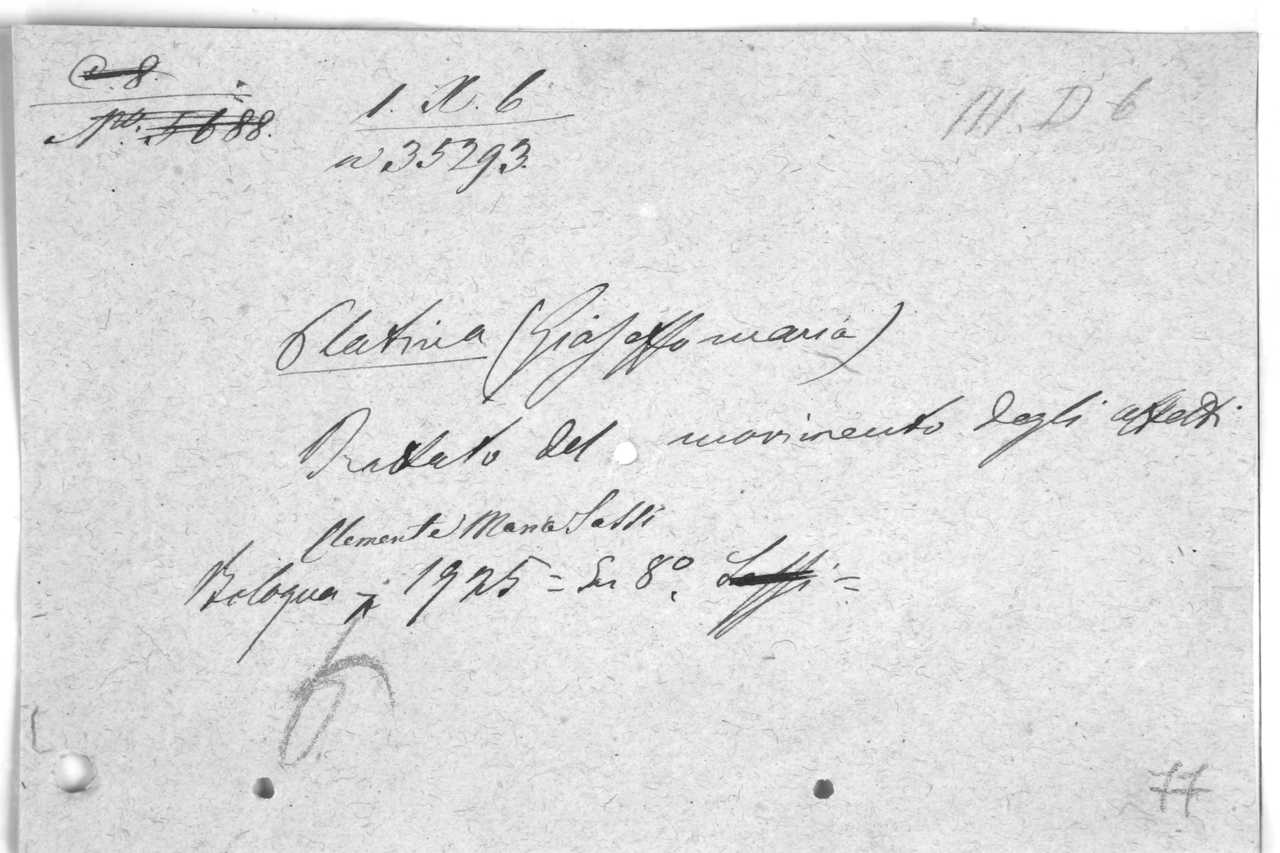 C. 8.
No. 5688.
1. X. 6
n 35293.
III. D 6
Platina (Gioseffomaria)
Trattato del movimento degli affetti
Clemente Maria Sassi
Bologna = 1725 = In 8°. Saffi =
6
77